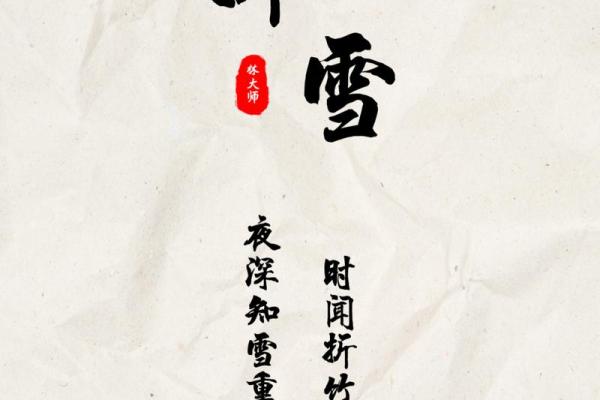 雪
林大师
夜深知雪重
时闻折竹